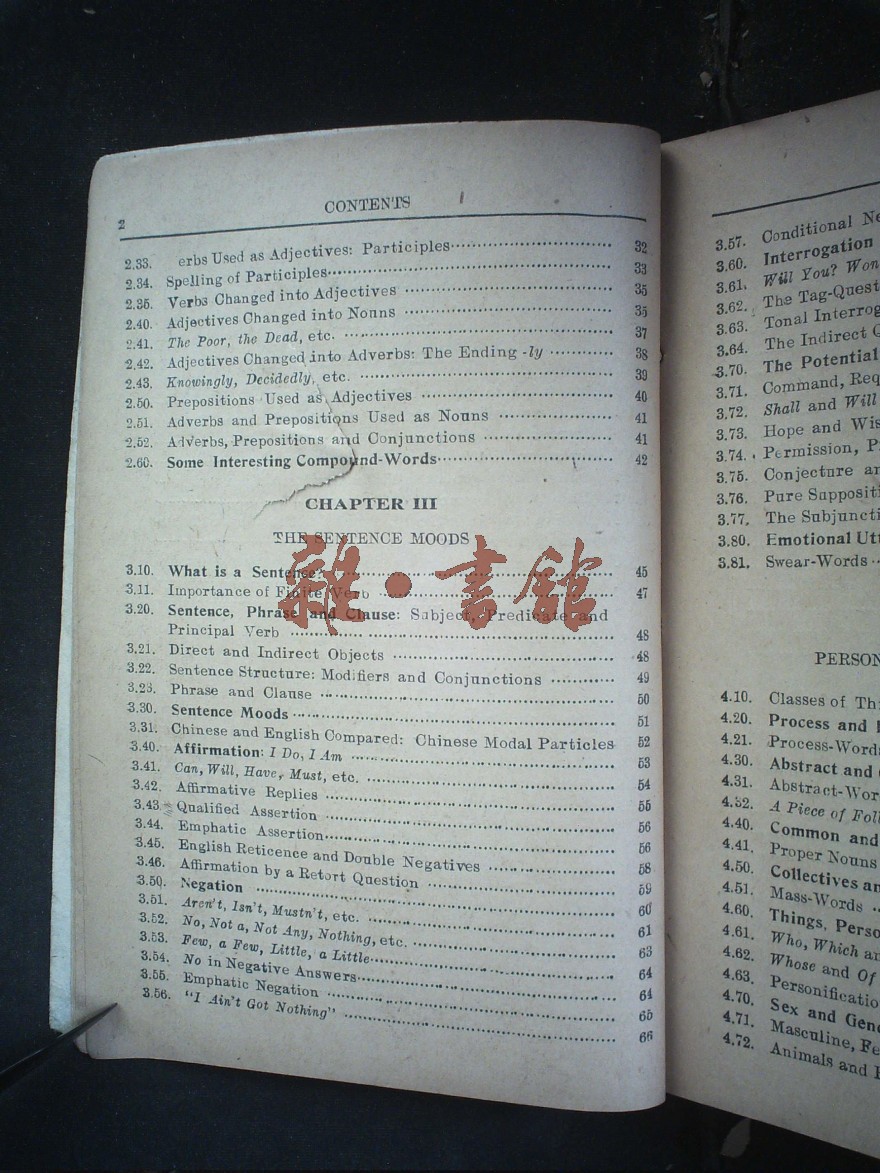 2
CONTENTS
2.33. erbs Used as Adjectives: Participles 32
2.34. Spelling of Participles 33
2.35. Verbs Changed into Adjectives 35
2.40. Adjectives Changed into Nouns 35
2.41. The Poor, the Dead, etc. 37
2.42. Adjectives Changed into Adverbs: The Ending -ly 38
2.43. Knowingly, Decidedly, etc. 39
2.50. Prepositions Used as Adjectives 40
2.51. Adverbs and Prepositions Used as Nouns 41
2.52. Adverbs, Prepositions and Conjunctions 41
2.60. Some Interesting Compound-Words 42
CHAPTER III
THE SENTENCE MOODS
3.10. What is a Sentence? 45
3.11. Importance of Finite Verb 47
3.20. Sentence, Phrase and Clause: Subject, Predicate and
Principal Verb 48
3.21. Direct and Indirect Objects 48
3.22. Sentence Structure: Modifiers and Conjunctions 49
3.23. Phrase and Clause 50
3.30. Sentence Moods 51
3.31. Chinese and English Compared: Chinese Modal Particles 52
3.40. Affirmation: I Do, I Am 53
3.41. Can, Will, Have, Must, etc. 54
3.42. Affirmative Replies 55
3.43. Qualified Assertion 56
3.44. Emphatic Assertion 56
3.45. English Reticence and Double Negatives 58
3.46. Affirmation by a Retort Question 59
3.50. Negation 60
3.51. Aren't, Isn't, Mustn't, etc. 61
3.52. No, Not a, Not Any, Nothing, etc. 63
3.53. Few, a Few, Little, a Little 64
3.54. No in Negative Answers 64
3.55. Emphatic Negation 65
3.56. "I Ain't Got Nothing" 66
雜·書館
3.57. Conditional Ne
3.60. Interrogation
3.61. Will You? Won
3.62. The Tag-Quest
3.63. Tonal Interrog
3.64. The Indirect Q
3.70. The Potential
3.71. Command, Req
3.72. Shall and Will
3.73. Hope and Wis
3.74. Permission, P
3.75. Conjecture an
3.76. Pure Suppositi
3.77. The Subjuncti
3.80. Emotional Utt
3.81. Swear-Words
PERSON
4.10. Classes of Th
4.20. Process and
4.21. Process-Word
4.30. Abstract and
4.31. Abstract-Wor
4.32. A Piece of Foll
4.40. Common and
4.41. Proper Nouns
4.50. Collectives an
4.51. Mass-Words
4.60. Things, Perso
4.61. Who, Which an
4.62. Whose and Of
4.63. Personificatio
4.70. Sex and Gend
4.71. Masculine, Fe
4.72. Animals and